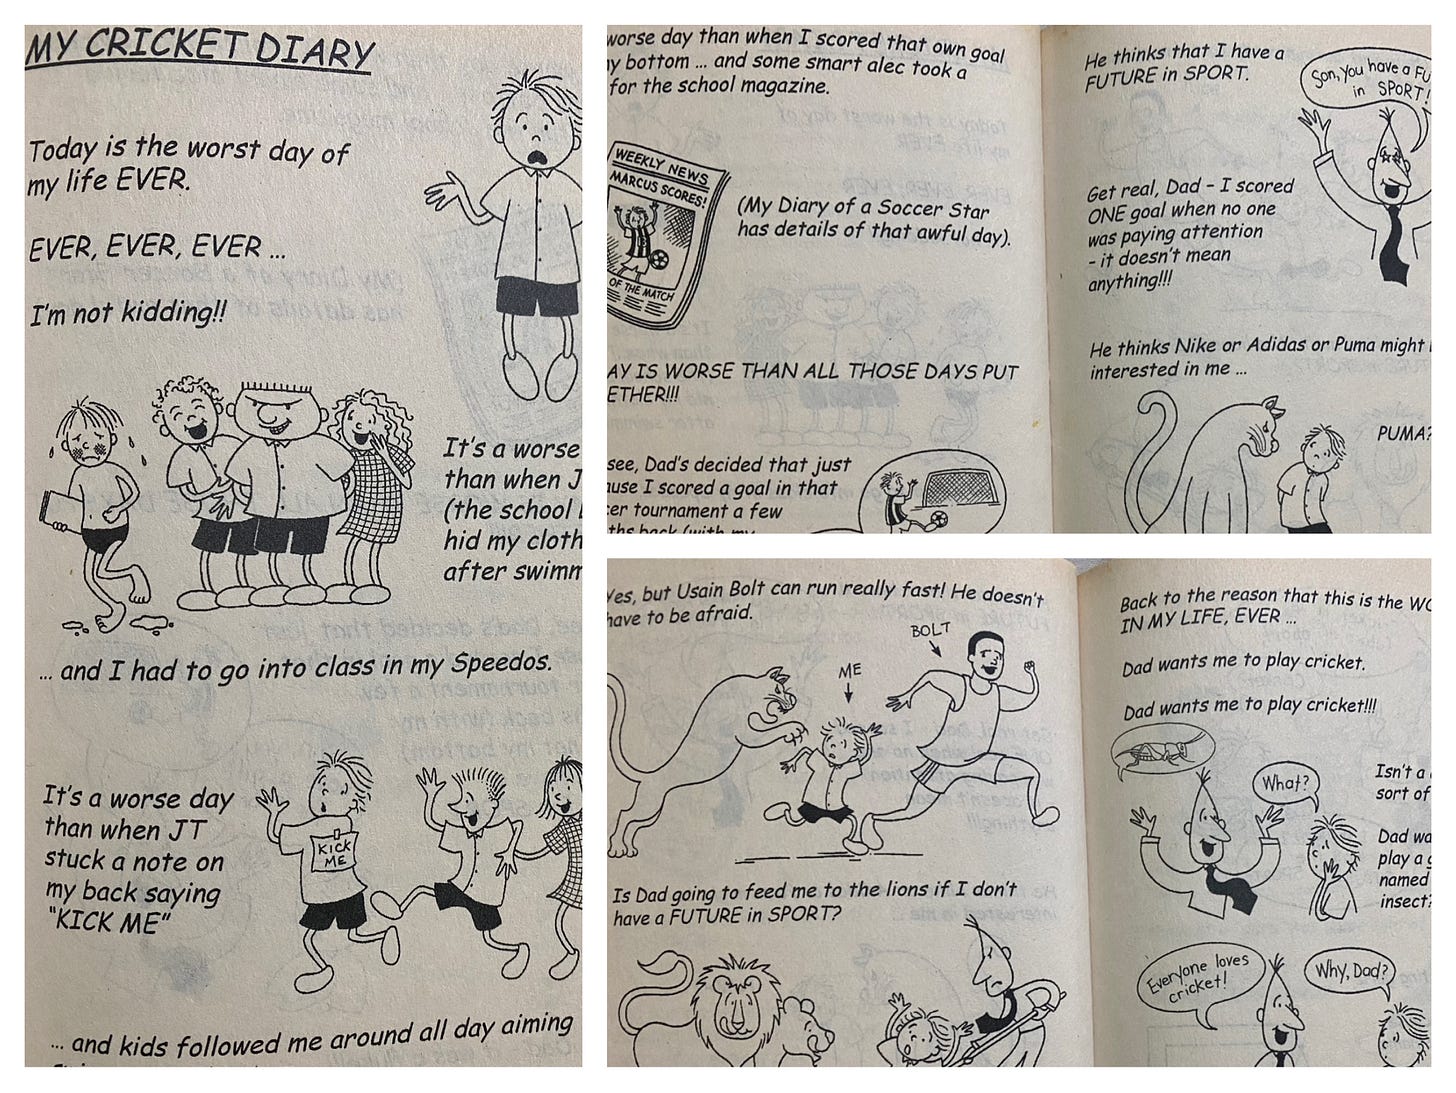 MY CRICKET DIARY
Today is the worst day of
my life EVER.
EVER, EVER, EVER ...
I'm not kidding!!
It's a worse
than when J
(the school
hid my cloth
after swimm
... and I had to go into class in my Speedos.
It's a worse day
than when JT
stuck a note on
my back saying
"KICK ME"
KICK
ME
... and kids followed me around all day aiming
worse day than when I scored that own goal
y bottom ... and some smart alec took a
for the school magazine.
WEEKLY NEWS
MARCUS SCORES!
OF THE MATCH
(My Diary of a Soccer Star
has details of that awful day).
AY IS WORSE THAN ALL THOSE DAYS PUT
ETHER!!!
see, Dad's decided that just
ause I scored a goal in that
cer tournament a few
ths back (with my
He thinks that I have a
FUTURE in SPORT.
Son, you have a FU
in SPORT!
Get real, Dad – I scored
ONE goal when no one
was paying attention
– it doesn't mean
anything!!!
He thinks Nike or Adidas or Puma might
interested in me ...
PUMA?
Yes, but Usain Bolt can run really fast! He doesn't
have to be afraid.
BOLT
ME
Is Dad going to feed me to the lions if I don't
have a FUTURE in SPORT?
Back to the reason that this is the WO
IN MY LIFE, EVER ...
Dad wants me to play cricket.
Dad wants me to play cricket!!!
What?
Isn't a
sort of
Dad wa
play a g
named
insect?
Everyone loves
cricket!
Why, Dad?